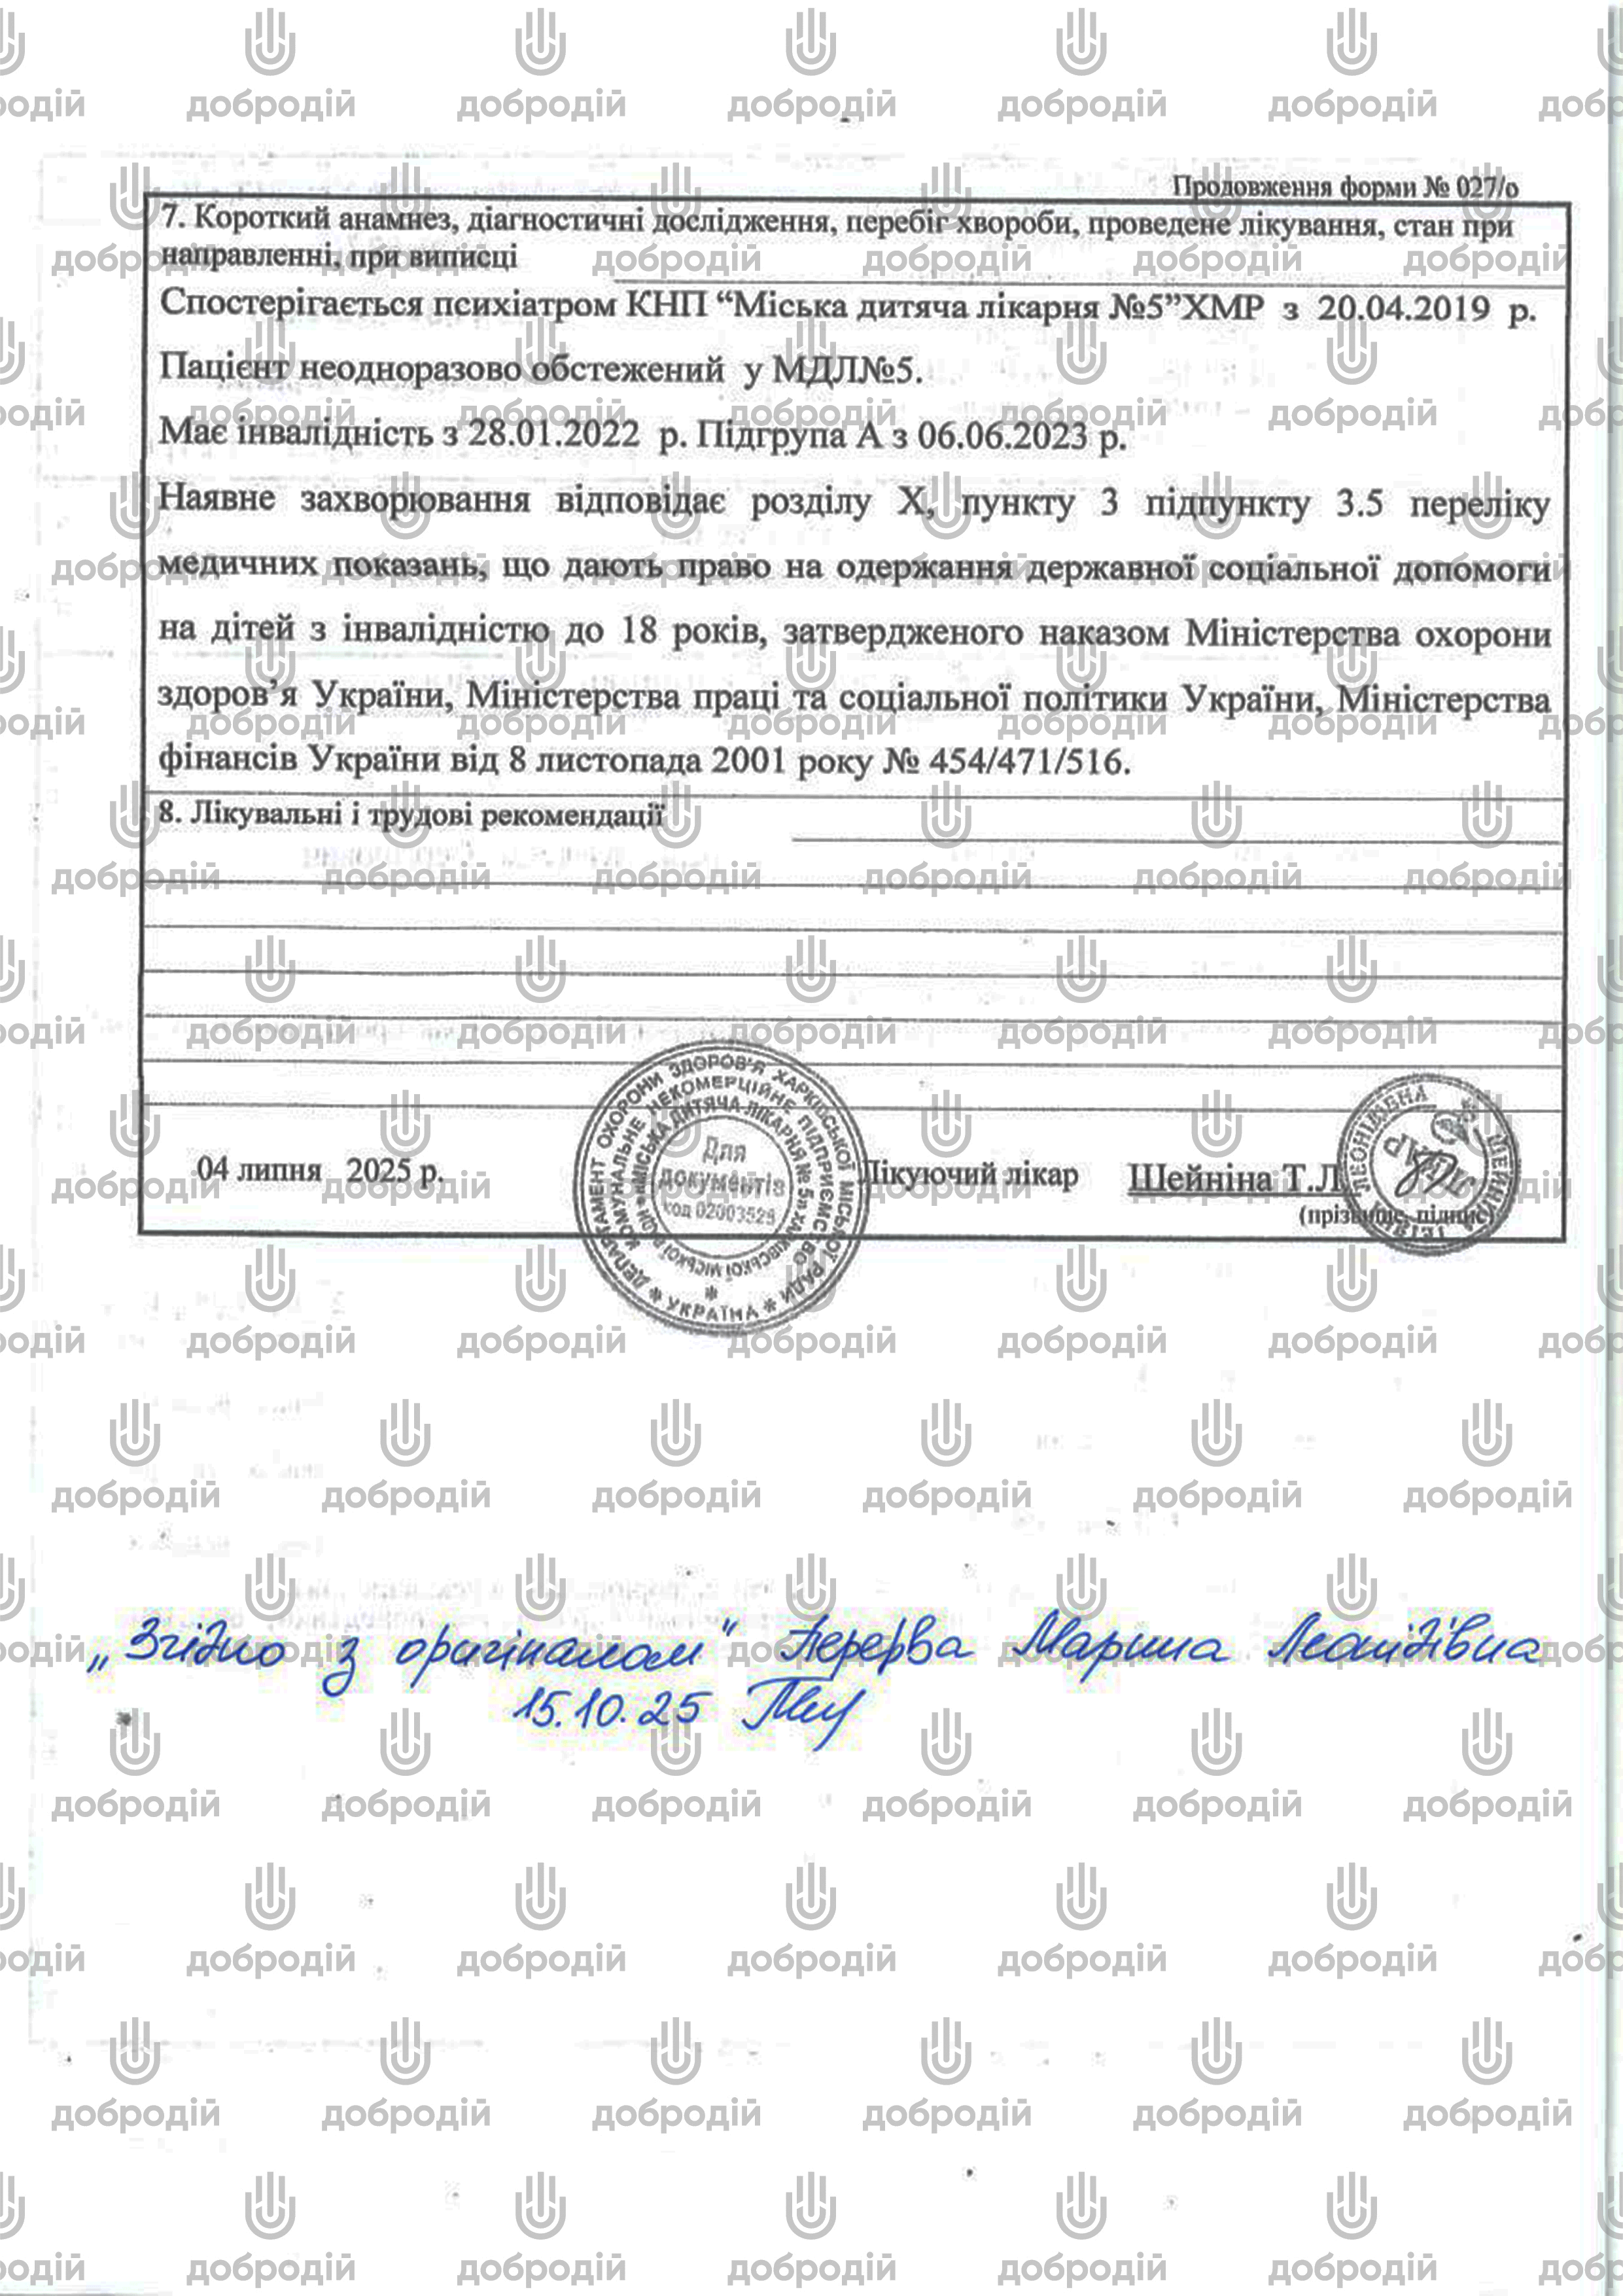 Продовження форми № 027/о
7. Короткий анамнез, діагностичні дослідження, перебіг хвороби, проведене лікування, стан при
направленні, при виписці
Спостерігається психіатром КНП “Міська дитяча лікарня №5”ХМР з 20.04.2019 р.
Пацієнт неодноразово обстежений у МДЛ№5.
Має інвалідність з 28.01.2022 р. Підгрупа А з 06.06.2023 р.
Наявне захворювання відповідає розділу X, пункту 3 підпункту 3.5 переліку
медичних показань, що дають право на одержання державної соціальної допомоги
на дітей з інвалідністю до 18 років, затвердженого наказом Міністерства охорони
здоров’я України, Міністерства праці та соціальної політики України, Міністерства
фінансів України від 8 листопада 2001 року № 454/471/516.
8. Лікувальні і трудові рекомендації
04 липня 2025 р.
ДЕПАРТАМЕНТ ОХОРОНИ ЗДОРОВ'Я ХАРКІВСЬКОЇ МІСЬКОЇ РАДИ * УКРАЇНА *
КОМУНАЛЬНЕ НЕКОМЕРЦІЙНЕ ПІДПРИЄМСТВО
«МІСЬКА ДИТЯЧА ЛІКАРНЯ № 5» ХАРКІВСЬКОЇ МІСЬКОЇ РАДИ
Для
документів
код 02003529
Лікуючий лікар Шейніна Т.Л
(прізвище, підпис)
ЛІКАР
„Згідно з оригіналом” Перерва Марина Леонідівна
15.10.25
добродій